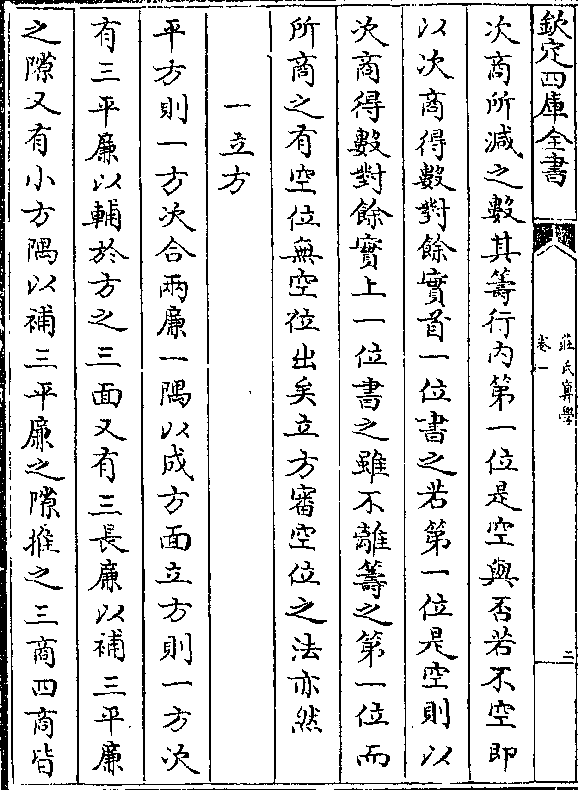 欽定四庫全書
莊氏算學
卷一
二
次商所減之數其籌行内第一位是空與否若不空即
以次商得數對餘實首一位書之若第一位是空則以
次商得數對餘實上一位書之雖不離籌之第一位而
所商之有空位無空位出矣立方審空位之法亦然
一立方
平方則一方次合兩廉一隅以成方面立方則一方次
有三平廉以輔於方之三面又有三長廉以補三平廉
之隙又有小方隅以補三平廉之隙推之三商四商皆